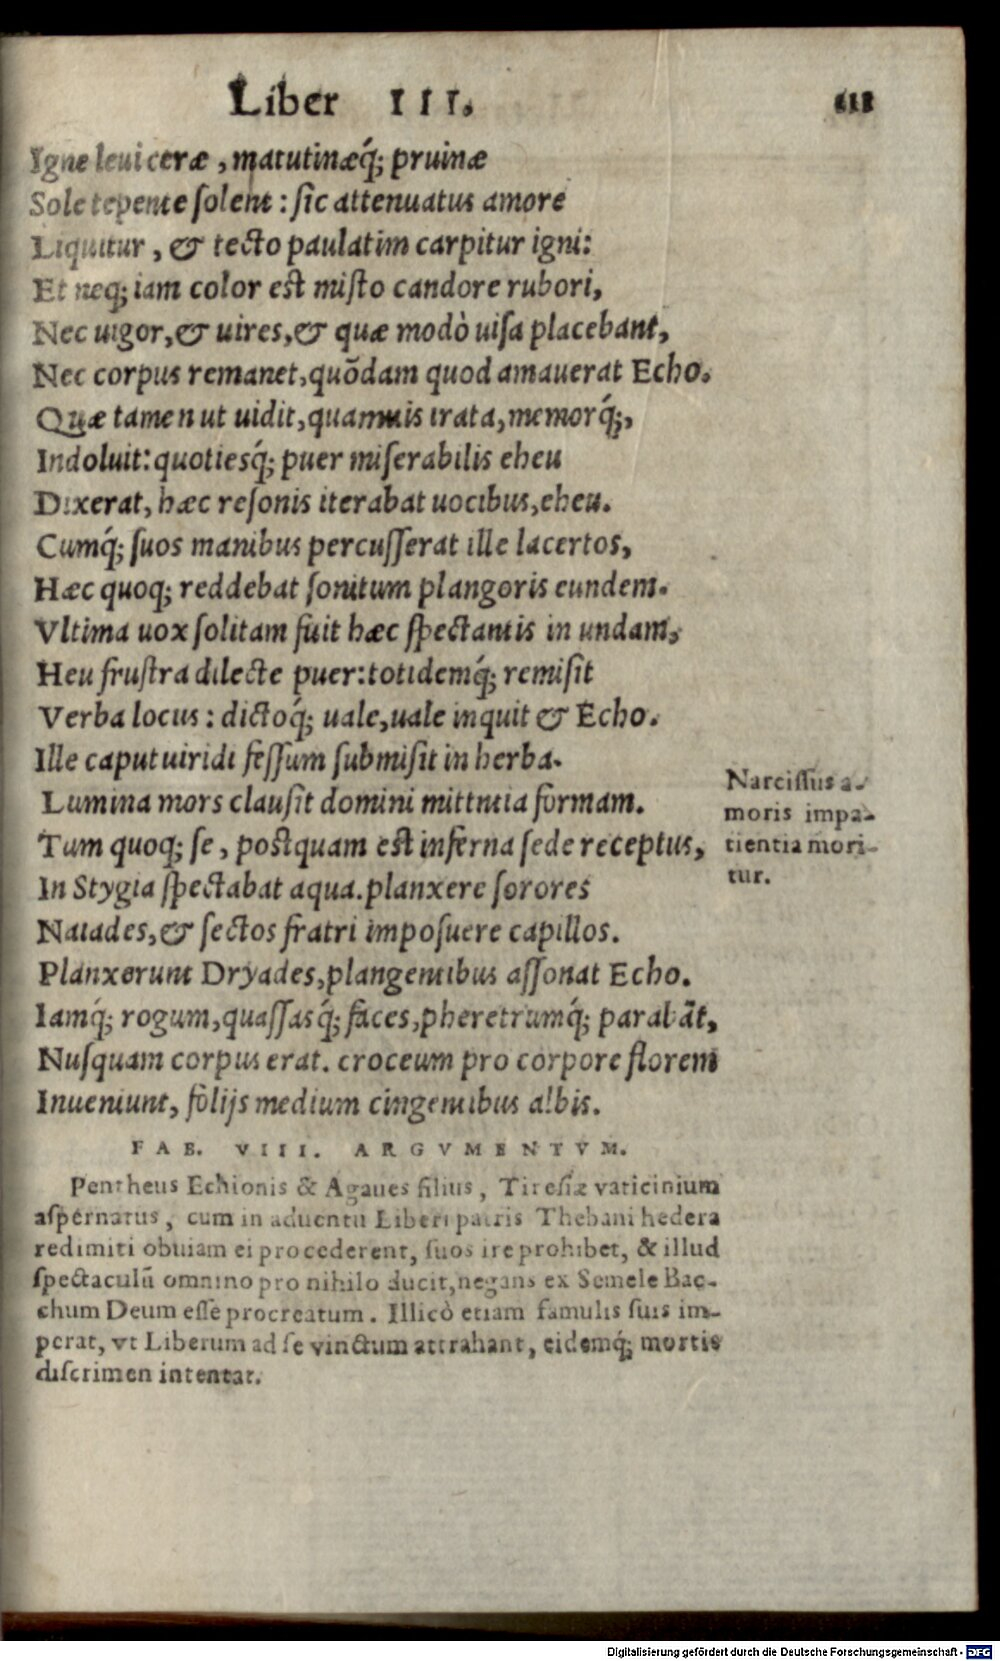 Liber III.
Igne leui ceræ, matutinæq́; pruinæ
Sole tepente ſolent: ſic attenuatus amore
Liquitur, & tecto paulatim carpitur igni:
Et neq; iam color eſt miſto candore rubori,
Nec uigor, & uires, & quæ modò uiſa placebant,
Nec corpus remanet, quōdam quod amauerat Echo.
Quæ tamen ut uidit, quamuis irata, memorq́;,
Indoluit: quotiesq́; puer miſerabilis eheu
Dixerat, hæc reſonis iterabat uocibus, eheu.
Cumq́; ſuos manibus percuſſerat ille lacertos,
Hæc quoq; reddebat ſonitum plangoris eundem.
Vltima uox ſolitam fuit hæc ſpectantis in undam,
Heu fruſtra dilecte puer: totidemq́; remiſit
Verba locus: dictoq́; uale, uale inquit & Echo.
Ille caput uiridi feſſum ſubmiſit in herba.
Lumina mors clauſit domini mirantia formam.
Tum quoq; ſe, poſtquam eſt inferna ſede receptus,
In Stygia ſpectabat aqua. planxere ſorores
Naiades, & ſectos fratri impoſuere capillos.
Planxerunt Dryades, plangentibus aſſonat Echo.
Iamq́; rogum, quaſſasq́; faces, pheretrumq́; parabāt,
Nuſquam corpus erat. croceum pro corpore florem
Inueniunt, folijs medium cingentibus albis.
Narciſſus a-
moris impa-
tientia mori-
tur.
FAB. VIII. ARGVMENTVM.
Pentheus Echionis & Agaues filius, Tireſiæ vaticinium
aſpernatus, cum in aduentu Liberi patris Thebani hedera
redimiti obuiam ei procederent, ſuos ire prohibet, & illud
ſpectaculū omnino pro nihilo ducit, negans ex Semele Bac-
chum Deum eſſe procreatum. Illicò etiam famulis ſuis im-
perat, vt Liberum ad ſe vinctum attrahant, eidemq́; mortis
diſcrimen intentat.
Digitalisierung gefördert durch die Deutsche Forschungsgemeinschaft - DFG